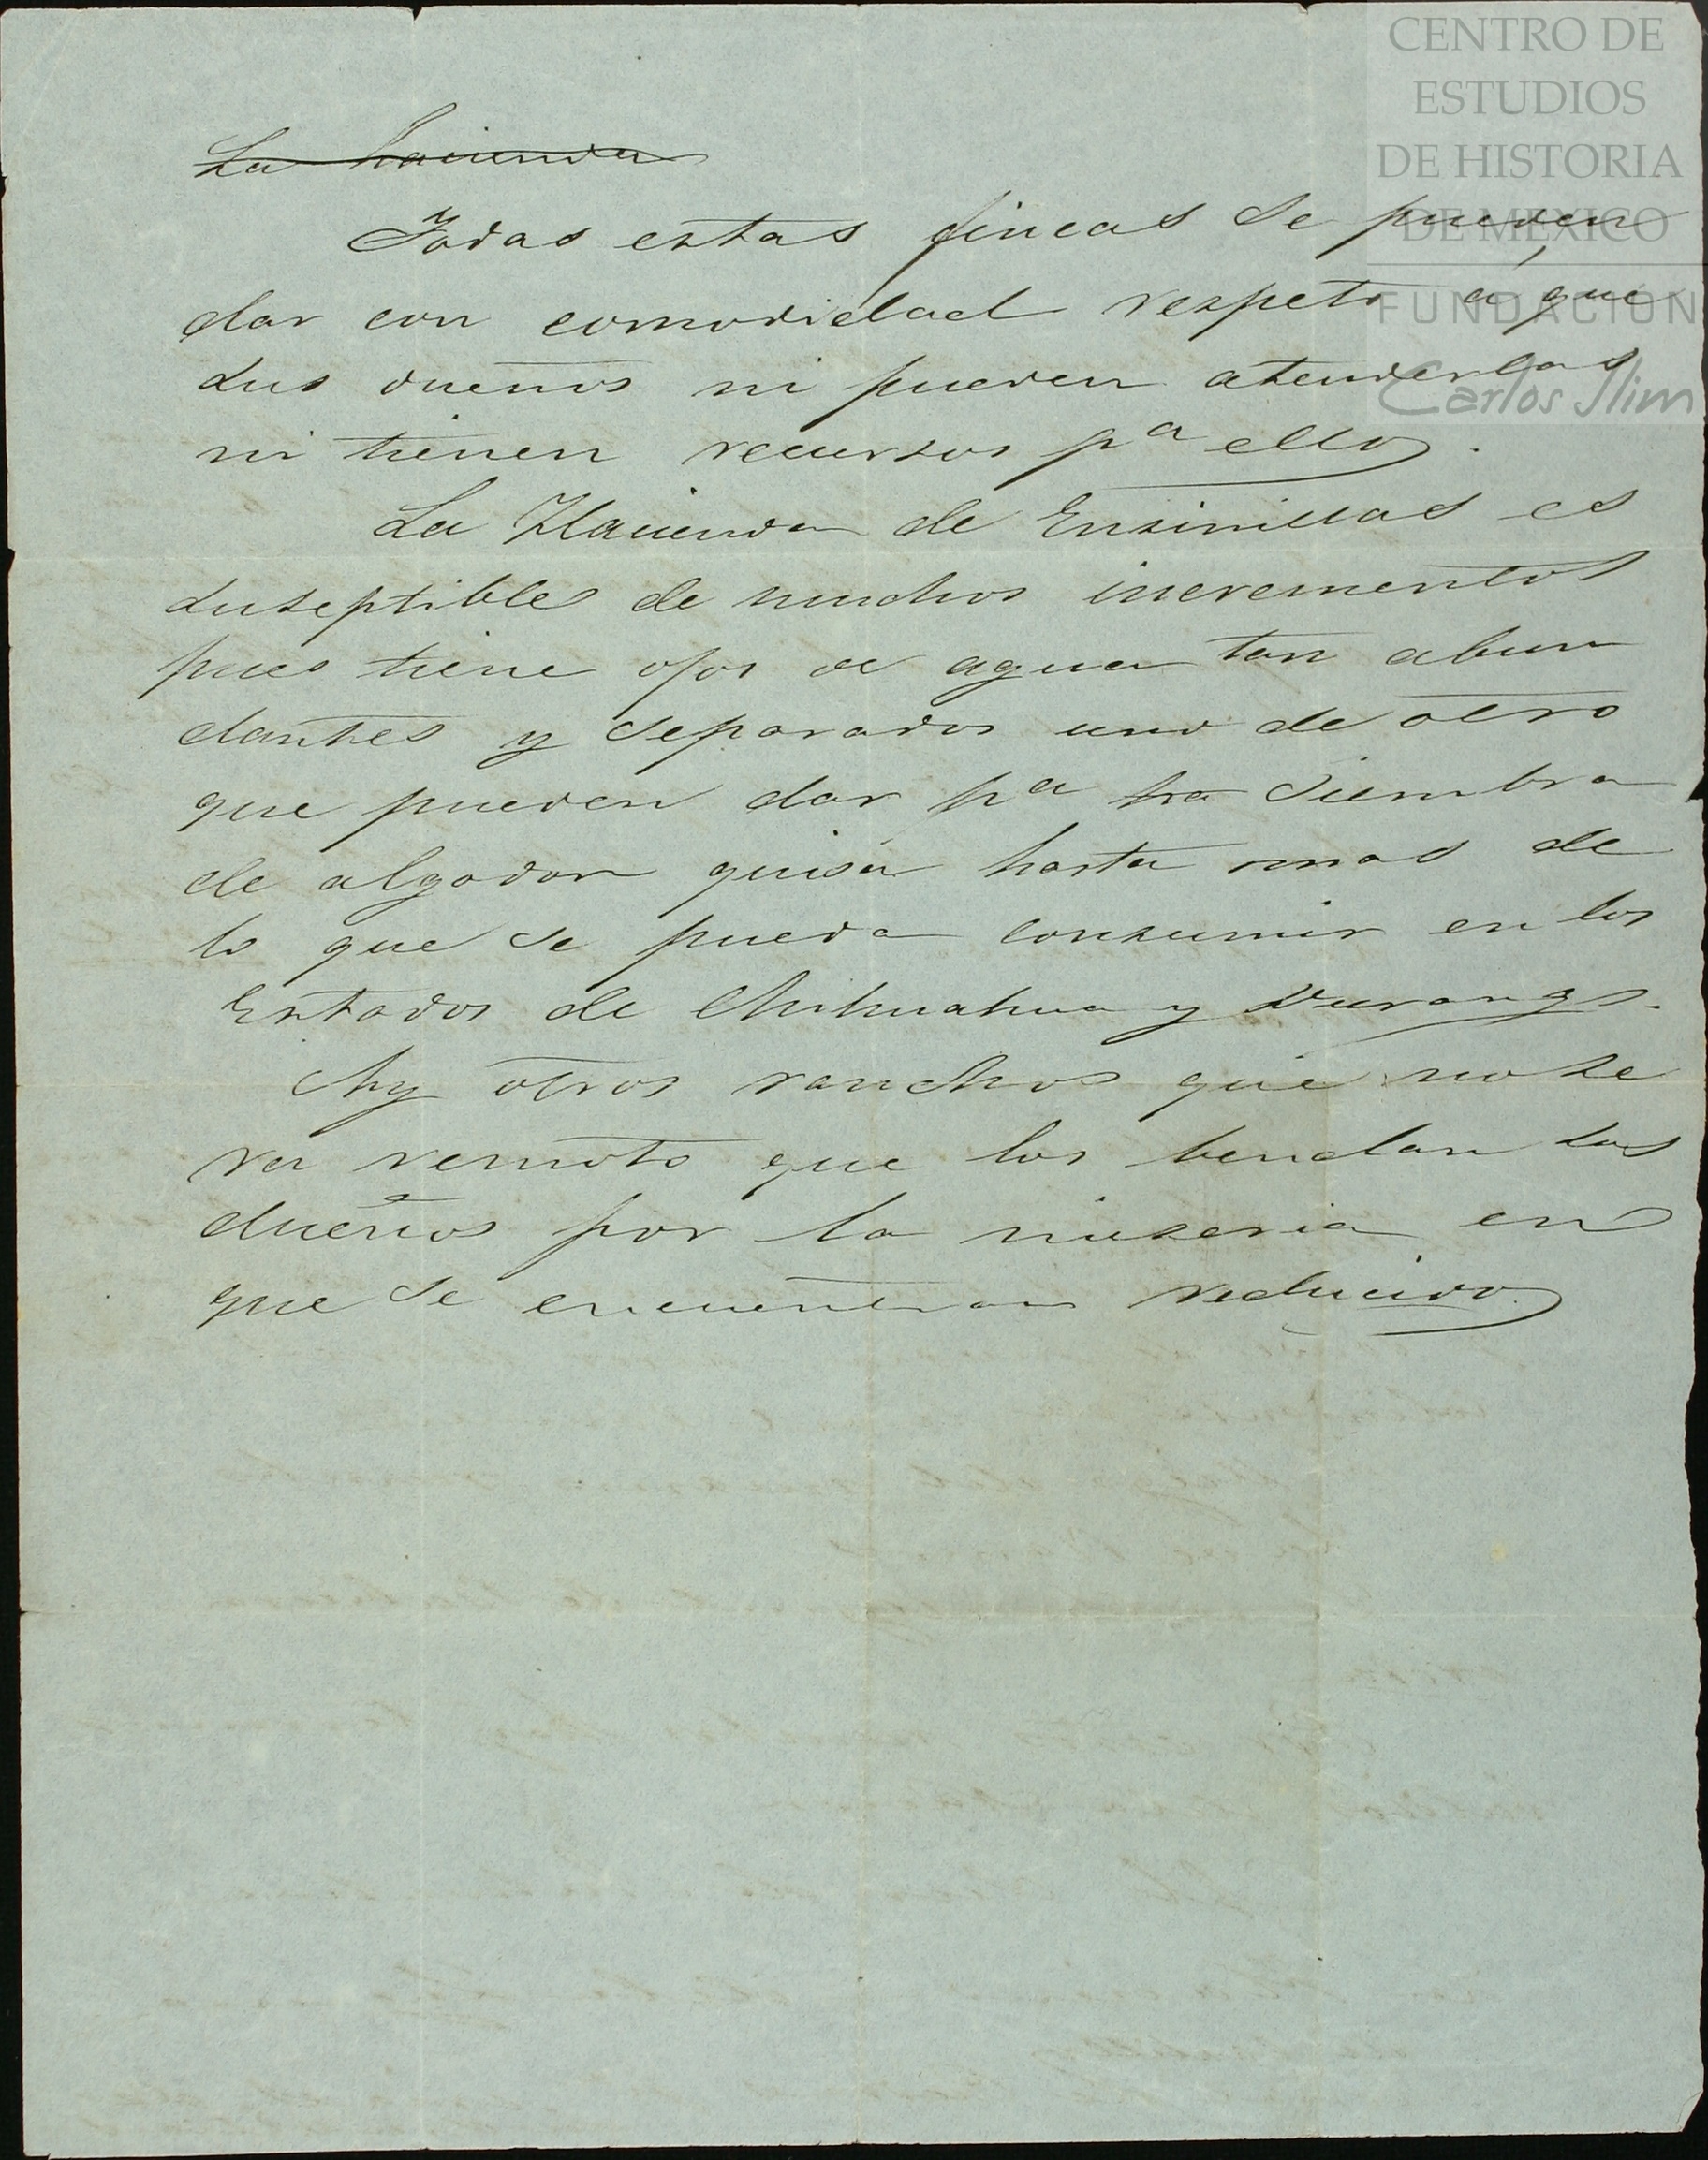 CENTRO DE
ESTUDIOS
DE HISTORIA
DE MÉXICO
FUNDACIÓN
Carlos Slim
La hacienda
Todas estas fincas se pueden
dar con comodidad respeto á que
sus duenos ni pueden atenderlas
ni tienen recursos pª ello.
La Hacienda de Ensinillas es
suseptible de muchos incrementos
pues tiene ojos de agua tan abun
dantes y separados uno de otro
que pueden dar pª la siembra
de algodon quisa hasta mas de
lo que se pueda consumir en los
Estados de Chihuahua y Durango.
Ay otros ranchos que no se
ra remoto que los bendan los
dueños por la miseria en
que se encuentran reducidos